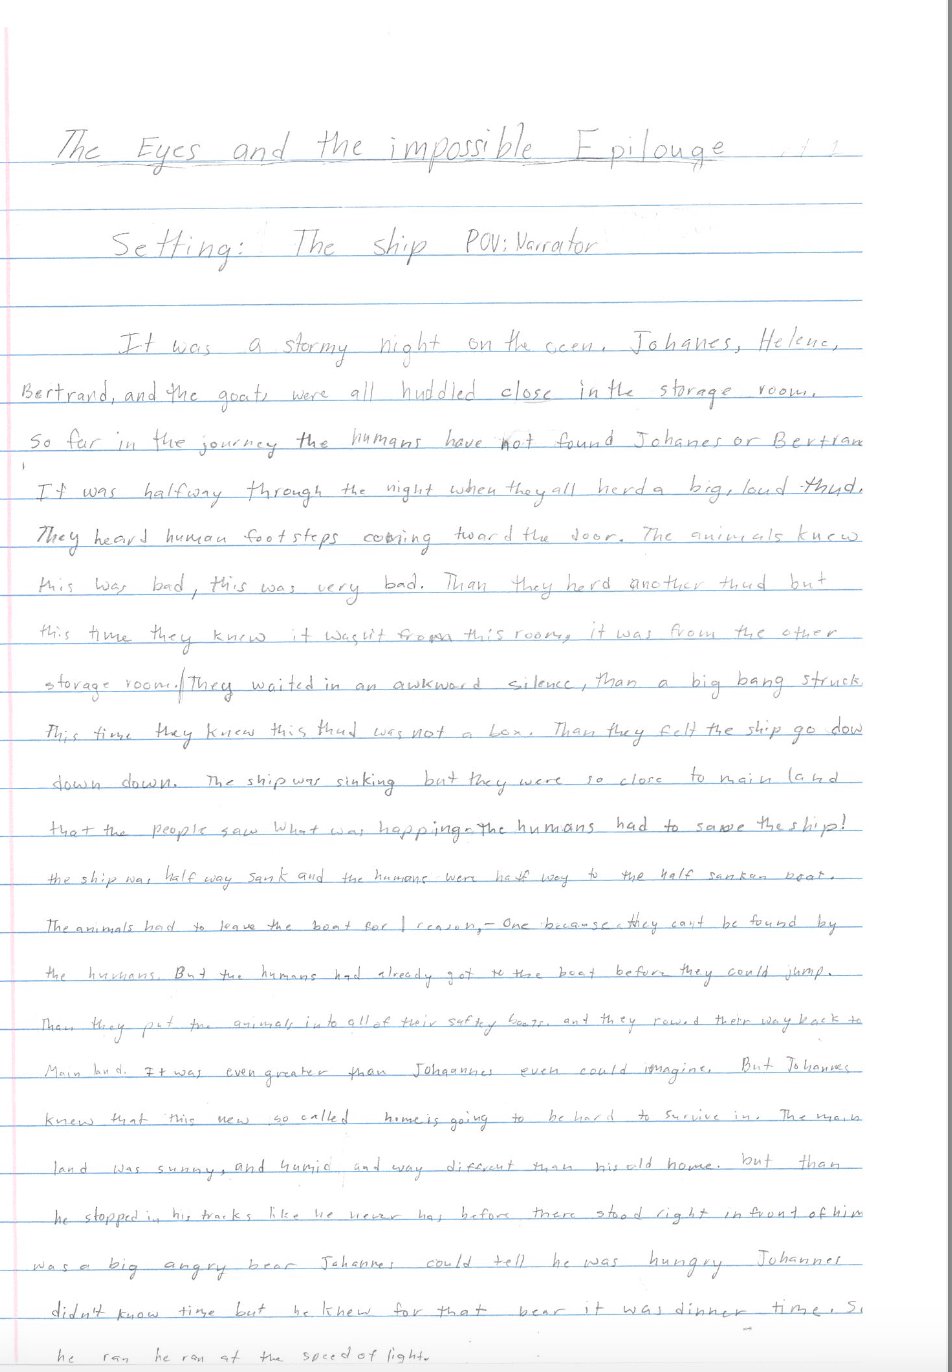 The Eyes and the impossible Epilouge
Setting: The ship POV: Narrator
It was a stormy night on the ocen. Johanes, Helene,
Bertrand, and the goats were all huddled close in the storage room.
So far in the journey the humans have not found Johanes or Bertran
It was halfway through the night when they all herd a big, loud thud.
They heard human footsteps coming tward the door. The animals knew
this was bad, this was very bad. Than they herd another thud but
this time they knew it wasn't from this room, it was from the other
storage room. They waited in an awkward silence, than a big bang struck
This time they knew this thud was not a box. Than they felt the ship go dow
down down. The ship was sinking but they were so close to main land
that the people saw what was happing. The humans had to save the ship!
the ship was half way sank and the humans were half way to the half sanken boat.
The animals had to leave the boat for 1 reason, - One because they cant be found by
the humans. But the humans had already got to the boat before they could jump.
Than they put the animals into all of their safty boats. and they rowed their way back to
Main land. It was even greater than Johaannes even could imagine. But Johannes
knew that this new so called home is going to be hard to survive in. The main
land was sunny, and humid and way different than his old home. but than
he stopped in his tracks like he never has before there stood right in front of him
was a big angry bear Johannes could tell he was hungry Johannes
didn't know time but he knew for that bear it was dinner time. So
he ran he ran at the speed of light.